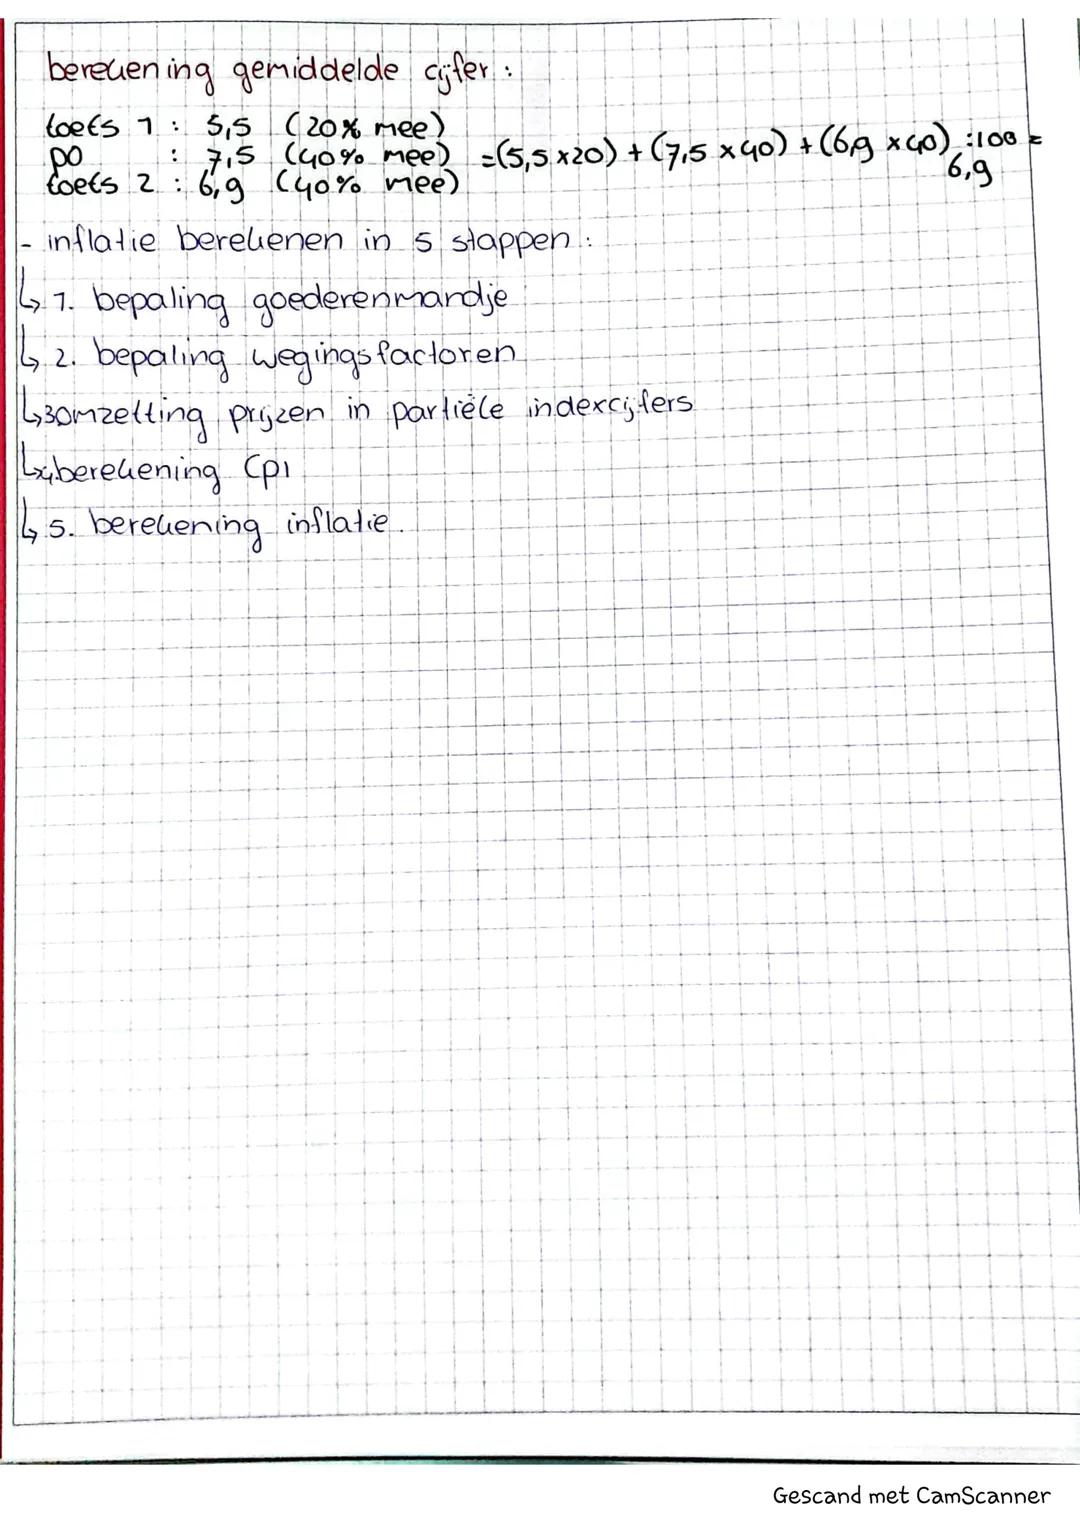 berekening gemiddelde cijfer :
toets 1 : 5,5 (20% mee)
po : 7,5 (40% mee) =(5,5 x20) + (7,5 x 40) + (6,9 x 40) :100 =
toets 2 : 6,9 (40% mee) 6,9
- inflatie berekenen in 5 stappen :
↳ 1. bepaling goederenmandje
↳ 2. bepaling wegingsfactoren
↳3omzetting prijzen in partiële indexcijfers
↳4.berekening CPI
↳ 5. berekening inflatie.
Gescand met CamScanner